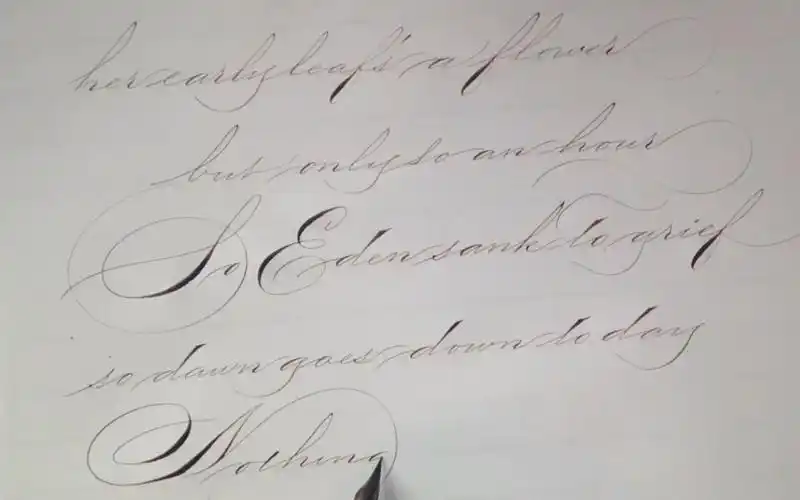 her early leaf's a flower
but only so an hour
So Eden sank to grief
so dawn goes down to day
Nothing